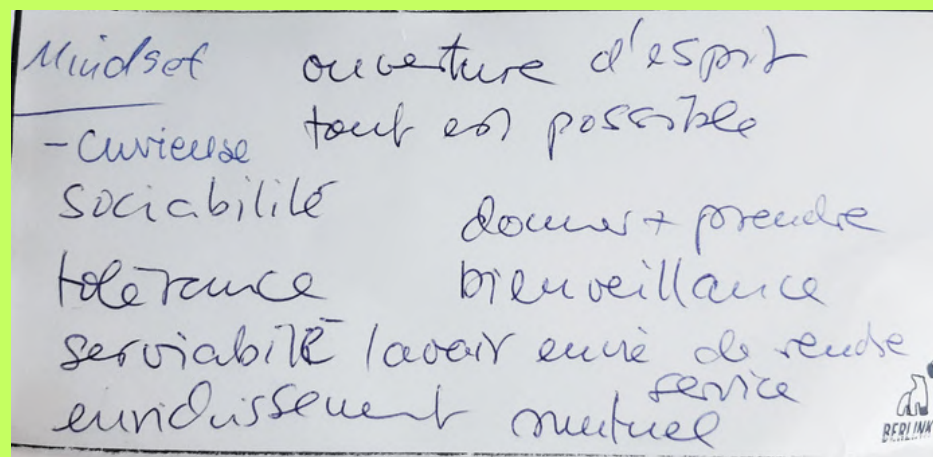 Mindset ouverture d'esprit
- curieuse tout est possible
sociabilité donner + prendre
tolérance bienveillance
serviabilité / avoir envie de rendre
service
enrichissement mutuel
BERLINK